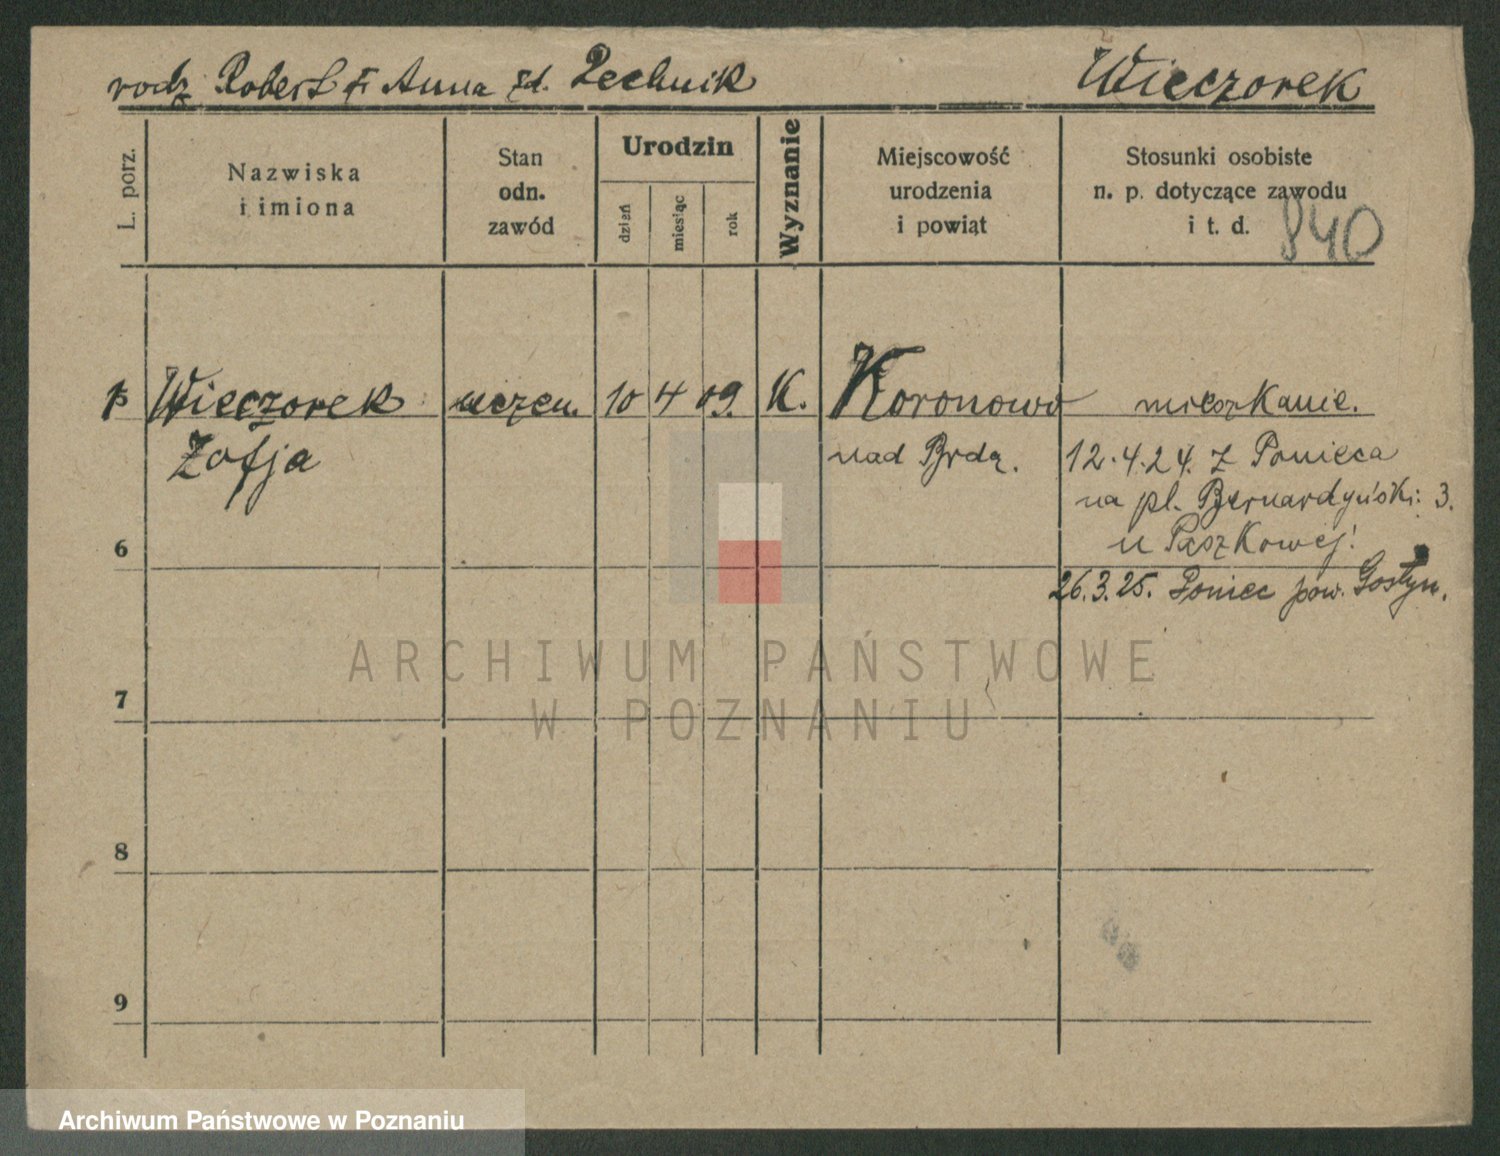 rodz Robert i Anna zd. Pechnik Wieczorek
L. porz.
Nazwiska
i imiona
Stan
odn.
zawód
Urodzin
dzień
miesiąc
rok
Wyznanie
Miejscowość
urodzenia
i powiąt
Stosunki osobiste
n. p. dotyczące zawodu
i t. d.
840
5 Wieczorek uczen. 10 4 09. K. Koronowo mieszkanie.
Zofja nad Brdą. 12.4.24. z Ponieca
na pl. Bernardyński: 3.
u Paszkowej!
6
26.3.25. Poniec pow. Gostyn.
ARCHIWUM PAŃSTWOWE
W POZNANIU
7
8
9
Archiwum Państwowe w Poznaniu